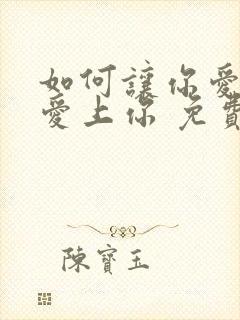 如何讓你愛
愛上你 免費
陳寶玉